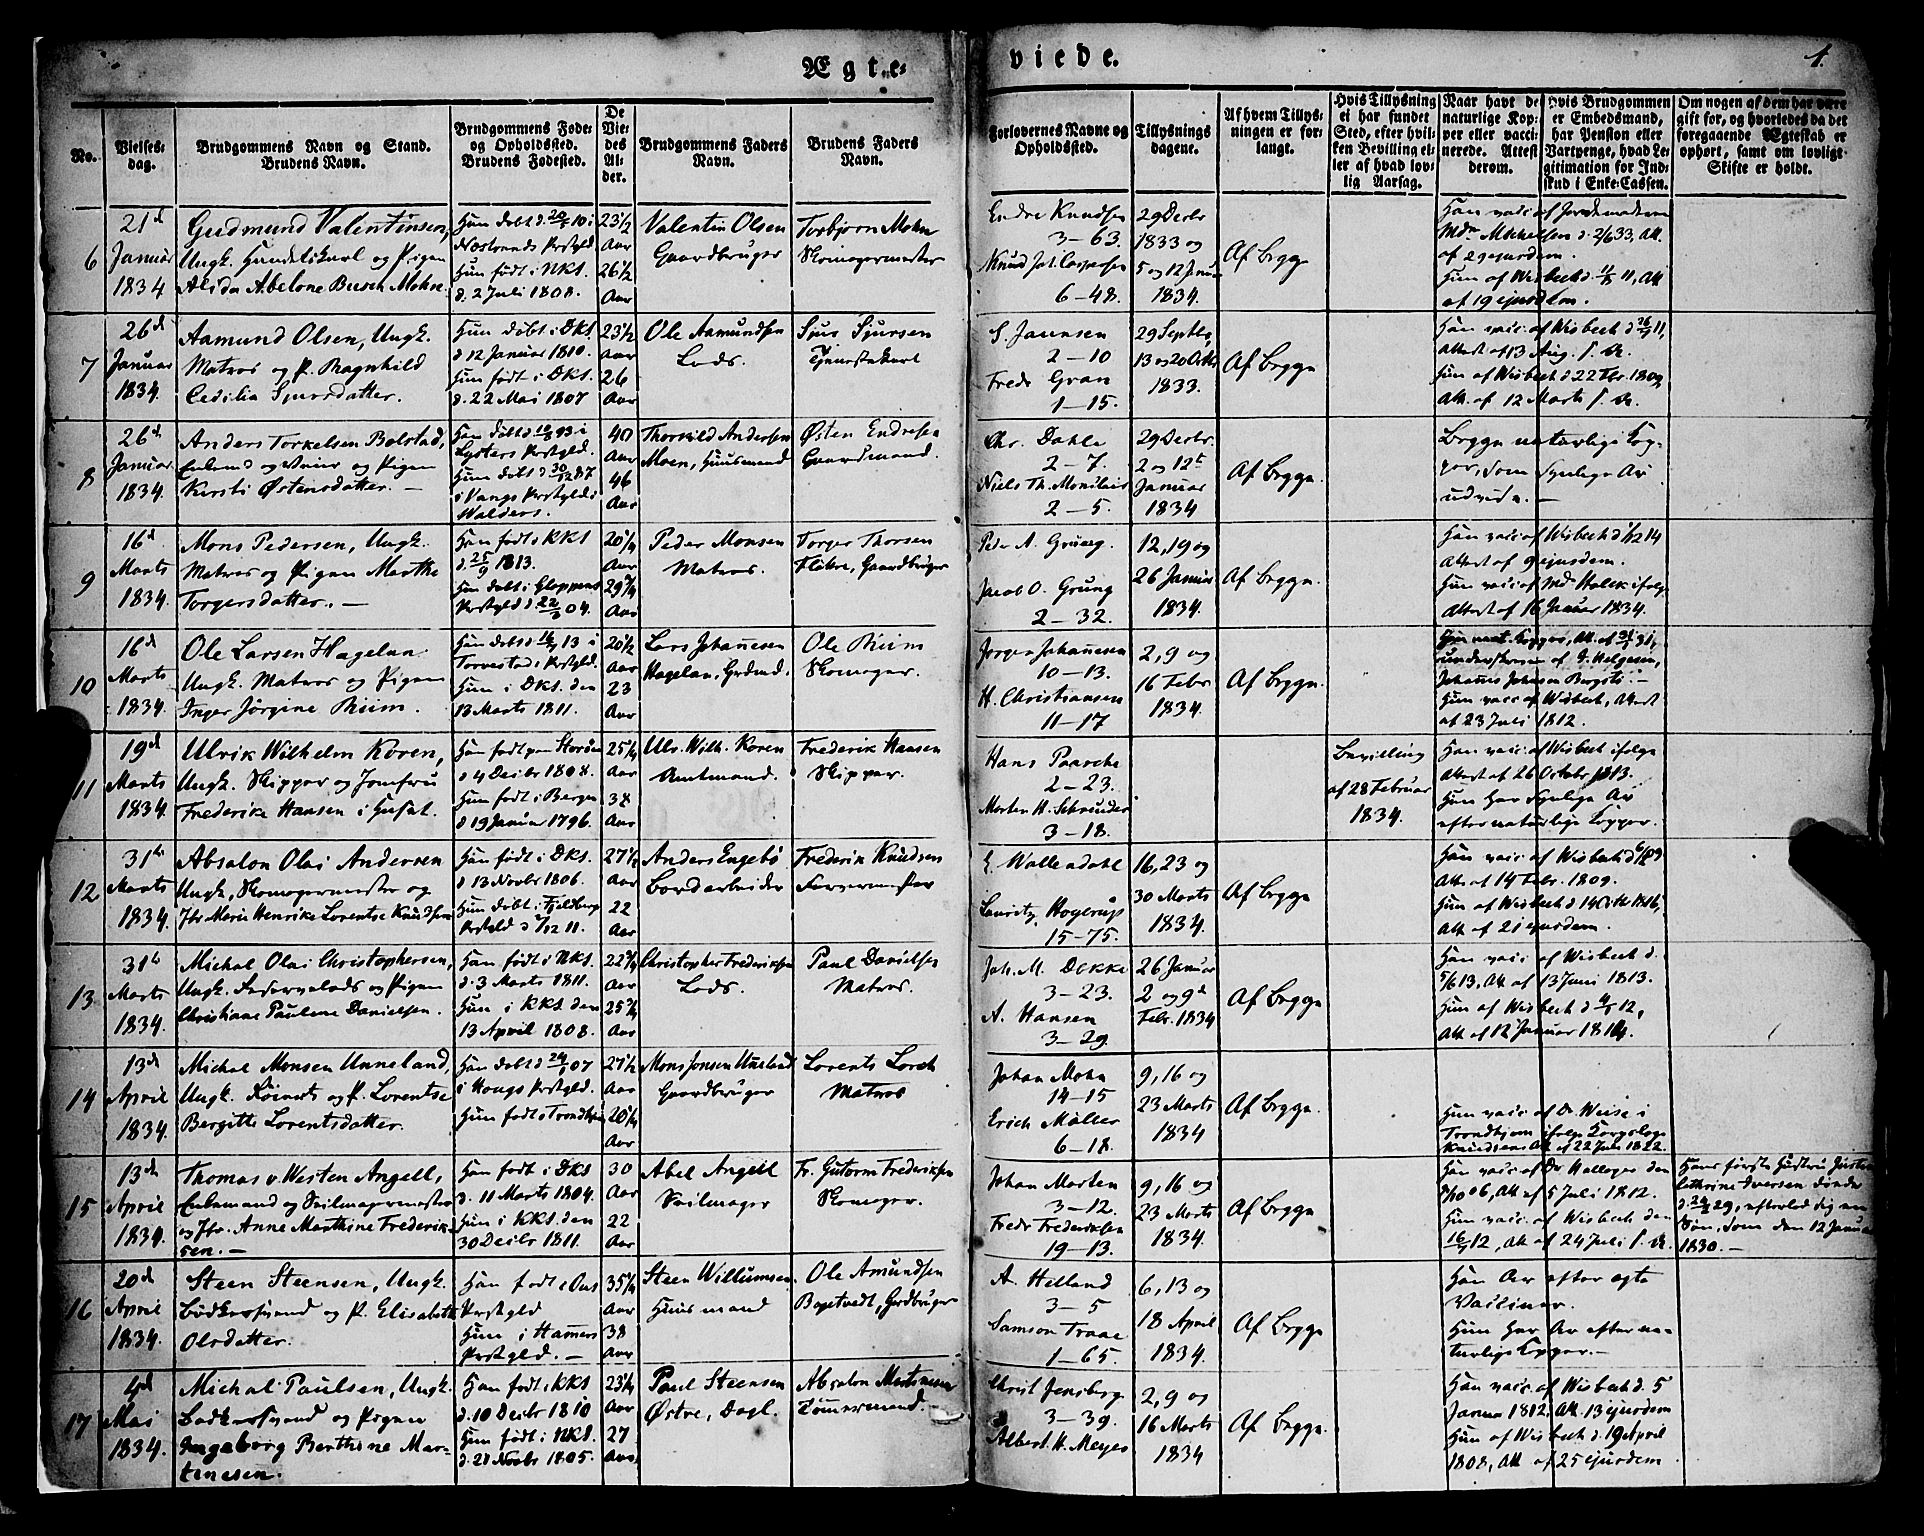 Ægte=
viede.
4.
No.
Vielses=
dag.
Brudgommens Navn og Stand.
Brudens Navn.
Brudgommens Føde=
og Opholdssted.
Brudens Fødested.
De
Vie=
des
Al=
der.
Brudgommens Faders
Navn.
Brudens Faders
Navn.
Forlovernes Navne og
Opholdssted.
Tillysnings
dagene.
Af hvem Tillys=
ningen er for=
langt.
Hvis Tillysning
ei har fundet
Sted, efter hvil=
ken Bevilling el=
ler af hvad lov=
lig Aarsag.
Naar havt de
naturlige Kop=
per eller vacci=
nerede. Attest
derom.
Hvis Brudgommen
er Embedsmand,
har Pension eller
Vartpenge, hvad Le=
gitimation for Ind=
skud i Enke=Cassen.
Om nogen af dem har være
gift for, og hvorledes da det
foregaaende Ægteskab er
ophørt, samt om lovligt
Skifte er holdt.
6
21d
Januar
1834
Gudmund Valentinsen,
Ungk. Handelskarl og Pigen
Alida Abelone Busch Mohn.
Han døbt d. 20/5 10 i
Præstgjld.
Hun født i NKS.
d. 2 Juli 1808.
23 1/2
Aar
26 1/2
Aar
Valentin Olsen
Gaardbruger
Torbjørn Mohn
Skomagermester
Endre Knudsen
3-63.
Knud Joh. Caspersen
6-48.
29 Decbr
1833 og
5 og 12 Janu
1834.
Af Begge
Han vacc. af Jordemoderen
Md. Michelsen d. 2/6 33, Att.
af 29 ejusdem.
Hun af Wisbech d. 11, Att
af 19 ejusdem.
7
26d
Januar
1834.
Aamund Olsen, Ungk.
Matros og P. Ragnhild
Cecilia Sjursdatter.
Han døbt i DKS.
d 12 Januar 1810.
Hun født i DKS.
d. 22 Mai 1807
23 1/2
Aar
26
Aar
Ole Aamundsen
Lods.
Sjur Sjursen
Tjenstekarl
S. Jannsen
2-10
Fredr Gran
1-15.
29 Septbr,
13 og 20 Octb
1833.
Af Begge
Han vacc. af Wisbech d 26/7 11,
Attest af 13 Aug. s. A.
Hun af Wisbech d 22 Febr. 1809,
Att. af 12 Marts s. A.
8
26d
Januar
1834.
Anders Torkelsen Bolstad,
Enkemd og Veier og Pigen
Kirsti Østensdatter. —
Han døbt d. 93 i
Lysters Præstgjld.
Hun døbt d. 30 87
i Vangs Præstgjld i
Walders.
40
Aar
46
Aar
Thorkild Andersen
Moen, Huusmand
Østen Endresen
Gaardmand.
Chr. Dahle
2-7.
Niels Th. Monclair
2-5.
29 Decbr.
2 og 12t
Januar
1834
Af Begge.
Begge naturlige Kop-
per, som synlige Ar
udvise. —
9
16d
Marts
1834.
Mons Pedersen, Ungk.
Matros og Pigen Marthe
Torgersdatter. —
Han født i KKS
d. 25/9 1813.
Hun døbt i Gloppens
Præstgld d 22/3 04.
20 1/4
Aar
29 3/4
Aar
Peder Monsen
Matros.
Torger Thorsen
Flölve, Gaardbruger
Peder A. Grung.
Jacob O. Grung
2-32.
12, 19 og
26 Januar
1834.
Af Begge.
Han vacc. af Wisbech d 1/12 14
Attest af 9 ejusdem.
Hun vacc. af Md Holck ifølge
Attest af 16 Januar 1834.
10
16d
Marts
1834.
Ole Larsen Hagelan
Ungk. Matros og Pigen
Inger Jørgine Riim.
Han døbt d 13 i
Torvestad Præstgld.
Hun i DKS. den
13 Marts 1811.
20 1/2
Aar
23
Aar
Lars Johannesen
Hagelan, Grdmd.
Ole Riim
Skomager.
Jørgen Johannesen
10-13.
H. Christiansen
11-17
2, 9 og
16 Febr
1834.
Af Begge.
Han nat. Kopper, Att. af 31,
underskreven af G. Helgesen,
Johannes Johnsen
Hun vacc. af Wisbech, Attest
af 23 Juli 1812.
11
19d
Marts
1834.
Ulrik Wilhelm Koren,
Ungk. Skipper og Jomfru
Frederike Hansen i Huset.
Han født paa Storöen
d 4 Decbr 1808.
Hun født i Bergen
d 19 Januar 1796.
25 1/4
Aar
38
Aar
Ulr. Wilh. Koren
Amtmand.
Frederik Hansen
Skipper.
Hans Paasche
2-23.
Morten H. Schreuder
3-18.
Bevilling
af 28 Februar
1834.
Han vacc. af Wisbech ifølge
Attest af 26 Octobr 1813.
Hun har synlige Ar
efter naturlige Kopper.
12
31te
Marts
1834.
Absalon Olai Andersen
Ungk, Skomagermester og
Jfr Marie Henrike Lorentse Knudsen
Han født i DKS.
d 13 Novbr 1806.
Hun døbt i Fjeldberg
Præstgld d 1/12 11.
27 1/2
Aar
22
Aar
Anders Engebø
Bordarbeider
Frederik Knudsen
Farvermester
E. Wallendahl
Lauritz Høgerup
15-75.
16, 23 og
30 Marts
1834.
Af Begge
Han vacc. af Wisbech d 09
Att. af 14 Febr. 1809.
Hun af Wisbech d 14 Octb 1816,
Att. af 21 ejusdem.
13
31te
Marts
1834.
Michal Olai Christophersen,
Ungk. og Pigen
Christiane Pauline Danielsen.
Han født i NKS.
d. 3 Marts 1811.
Hun i KKS den
13 April 1808.
22 3/4
Aar
25 3/4
Aar
Christopher Frederiksen
Lods.
Paul Danielsen
Matros.
Joh. M. Dekke
3-23.
A. Hansen
3-29
26 Januar
2 og 9d
Febr. 1834
Af Begge
Han vacc. af Wisbech d.
5/6 13, Att. af 13 Juni 1813.
Hun af Wisbech d. 12,
Att. af 12 Januar 1814.
14
13de
April
1834.
Michal Monsen Unneland,
Ungk. og P. Lorentse
Bergitte Lorentsdatter.
Han døbt d 07
i Hougs Præstgld.
Hun født i Trondhjem
27 1/2
Aar
20 1/4
Aar
Mons Jonsen Unneland
Gaardbruger
Lorents Lorch
Matros
Johan Mohn
14-15
Erich Müller
6-18.
9, 16 og
23 Marts
1834
Af Begge.
Hun vacc. af Dr Weise i
Trondhjem ifølge
Knudsens Att. af 22 Juli 1822.
15
13de
April
1834.
Thomas v. Westen Angell,
Enkemand og Seilmagermester
og Jfr. Anne Marthine Frederik-
sen. —
Han født i DKS
d. 11 Marts 1804.
Hun i KKS. den
30 Decbr 1811.
30
Aar
22
Aar
Abel Angell
Seilmager
Fr. Gutorm Frederiksen
Skomager.
Johan Morten
3-12.
Fredr Frederiksen
19-13.
9, 16 og
23 Marts
1834.
Af Begge
Han vacc. af Dr den
/10 06, Att. af 5 Juli 1812.
Hun vacc. af Wisbech den
16/7 12, Att. af 24 Juli s. A.
Hans første Hustru
Cathrine Iversen døde
d. 29, efterlod sig en
Søn, som den 12 Januar
1830. —
16
20d
April
1834.
Steen Steensen, Ungk.
Bødkersvend og P. Elisabeth
Olsdatter.
Han født i Ous
Præstgld
Hun i Hammers
Præstgld. —
35 3/4
Aar
38
Aar
Steen Willumsen
Huusmand
Ole Amundsen
Grdbruger
A. Helland
3-5
Samson Traae
1-65.
6, 13 og
18 April
1834.
Af Begge
Han Ar efter ægte
Vacciner.
Hun har Ar efter na-
turlige Kopper. —
17
4d
Mai
1834.
Michal Paulsen, Ungk.
Bødkersvend og Pigen
Ingeborg Berthine Mar-
tinesen.
Han født i KKS
d. 10 Decbr 1810
Hun født i NKS.
d. 21 Novbr 1805.
23 1/4
Aar
27
Aar
Paul Steensen
Østre, Dagl.
Absalon Martinesen
Tömmermand.
Christ Jensberg
3-39.
Albert H. Meyer
2, 9 og
16 Marts
1834
Af Begge.
Han vacc. af Wisbech d. 5
Januar 1812, Att. 13 ejusdem
Hun af Wisbech d. 19 April
1808, Att af 25 ejusdem